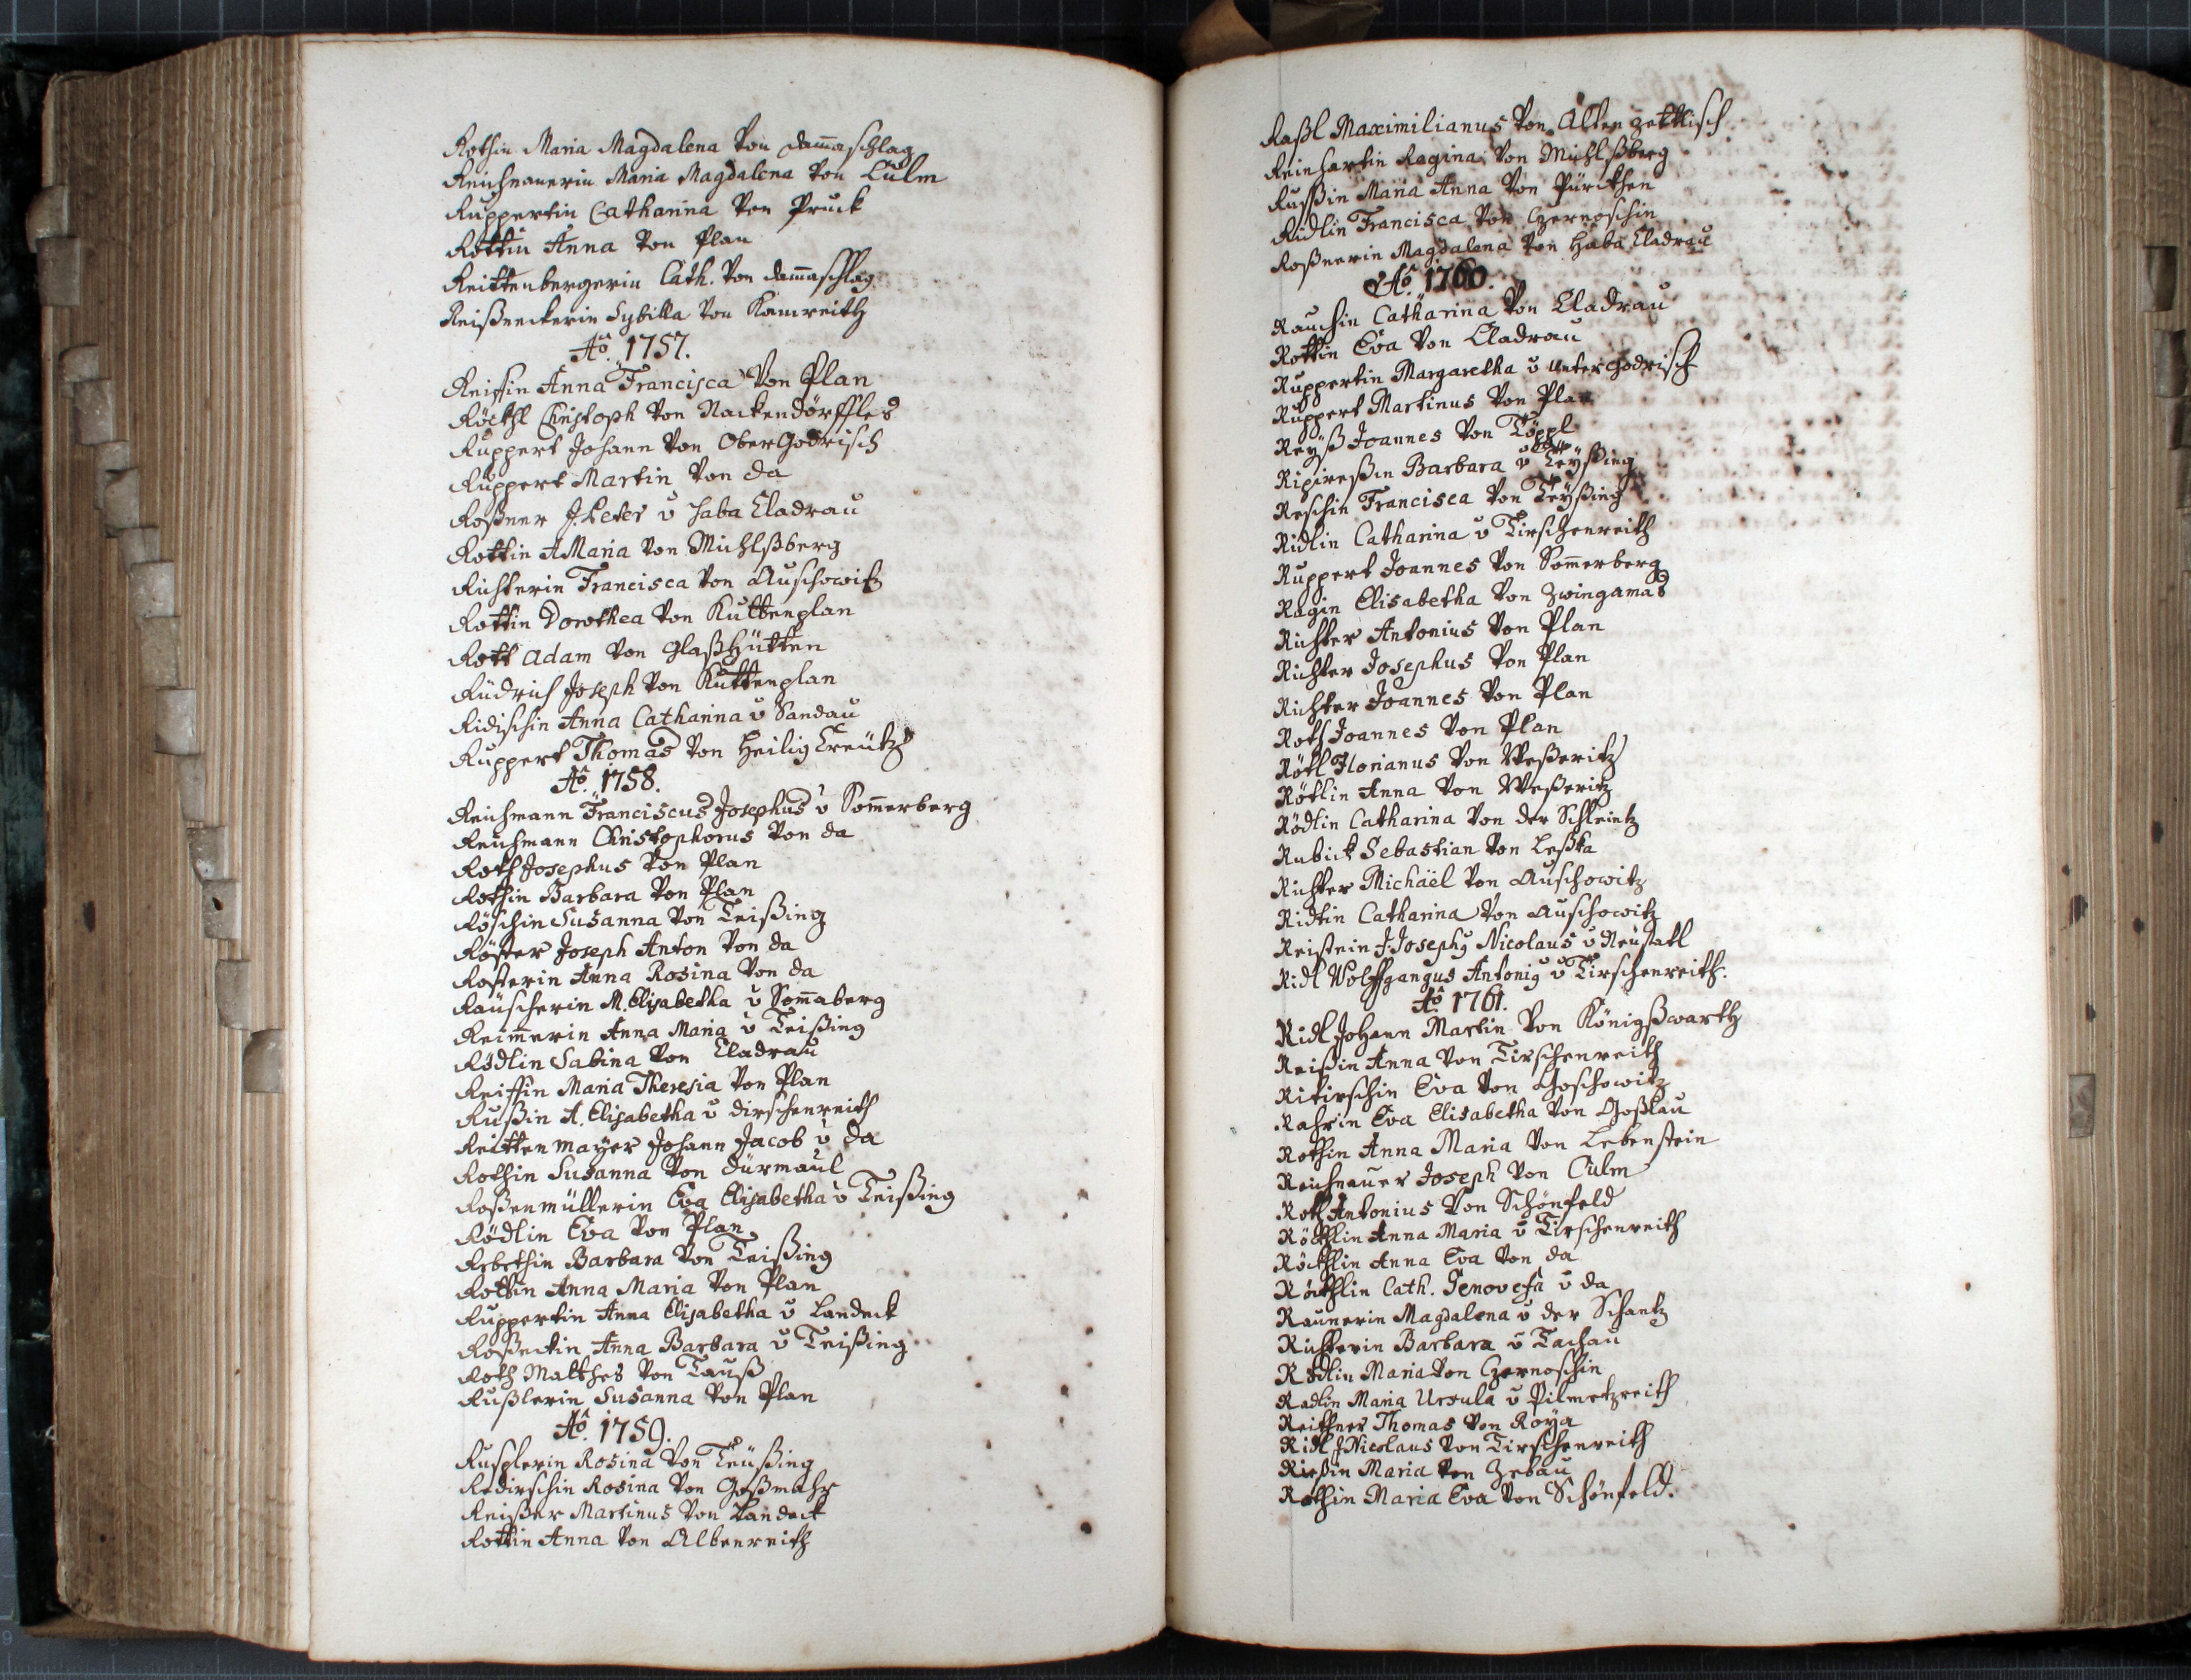 Rothin Maria Magdalena Von dam̃aschlag
Reichnauerin Maria Magdalena Von Culm
Ruppertin Catharina Von Pruck
Rottin Anna Von Plan
Reittenbergerin Cath. Von dam̃aschlag
Reißneckerin Sybilla Von Kamreith
Aõ. 1757.
Reissin Anna Francisca Von Plan
Röckl Christoph Von Nackendörffles
Ruppert Johann Von OberGodrisch
Ruppert Martin Von da
Roßner J. Peter v Haba Cladrau
Rottin AMaria Von Michlßberg
Richterin Francisca Von Auschowitz
Rottin Dorothea Von Kuttenplan
Rott Adam Von Glaßhütten
Rüdrich Joseph Von Kuttenplan
Ridischin Anna Catharina v Sandau
Ruppert Thomas Von Heilig Creütz
Aõ. 1758.
Reichmann Franciscus Josephus v Som̃erberg
Reichmann Christophorus Von da
Roth Josephus Von Plan
Rothin Barbara Von Plan
Röschin Susanna Von Teißing
Röster Joseph Anton Von da
Rosterin Anna Rosina Von da
Rauscherin M. Elisabetha v Som̃aberg
Reim̃erin Anna Maria v Teißing
Rödlin Sabina Von Cladrau
Reissin Maria Theresia Von Plan
Rußin A. Elisabetha v dirschenreith
Reittenmayer Johann Jacob v da
Rothin Susanna Von dürmaul
Roßenmüllerin Eva Elisabetha v Teißing
Rödlin Eva Von Plan
Rebethin Barbara Von Teißing
Rottin Anna Maria Von Plan
Ruppertin Anna Elisabetha v Landeck
Roßeckin Anna Barbara v Teißing
Roth Matthes Von Tauß
Rußlerin Susanna Von Plan
Aõ. 1759.
Rusplerin Rosina Von Teüßing
Redirschin Rosina Von Goßmahr
Reißer Martinus Von Landeck
Rottin Anna Von Albenreith
Raßl Maximilianus Von Alten zettlisch
Reinhartin Regina Von Michlßberg
Rußin Maria Anna Von Pürckhen
Ridlin Francisca Von Czernoschin
Roßnerin Magdalena Von Haba Cladrau
Aõ. 1760.
Rauchin Catharina Von Cladrau
Rottin Eva Von Cladrau
Ruppertin Margaretha v Unter Godrisch
Ruppert Martinus Von Plan
Reyß Joannes Von Töppl
Ripireßin Barbara v Teyßing
Reschin Francisca Von Teyßing
Ridlin Catharina v Tirschenreith
Ruppert Joannes Von Som̃erberg
Ragin Elisabetha Von Zwingamas
Richter Antonius Von Plan
Richter Josephus Von Plan
Richter Joannes Von Plan
Roth Joannes Von Plan
Rötl Florianus Von Weßeritz
Rötlin Anna Von Weßeritz
Rödlin Catharina Von der Schleintz
Rubick Sebastian Von Leßka
Richter Michäel Von Auschowitz
Ridlin Catharina Von Auschowitz
Reistein J. Josephg Nicolaus v Neüstatl
Ridl Wolffgangus Antonig v Tirschenreith.
Aõ. 1761.
Ridl Johann Martin Von Königßwarth
Reißin Anna Von Tirschenreith
Ritirschin Eva Von Goschowitz
Rahrin Eva Elisabetha Von Goßlau
Rothin Anna Maria Von Lebenstein
Reichnauer Joseph Von Culm
Roth Antonius Von Schönfeld
Röcklin Anna Maria v Tirschenreith
Röcklin Anna Eva Von da
Röcklin Cath. Genovefa v da
Raunerin Magdalena v der Schantz
Richterin Barbara v Tachau
Rödlin Maria Von Czernoschin
Radlin Maria Ursula v Pilmetzreith
Reithner Thomas Von Roya
Ridl J Nicolaus Von Tirschenreith
Rießin Maria Von Zebau
Rothin Maria Eva Von Schönfeld.